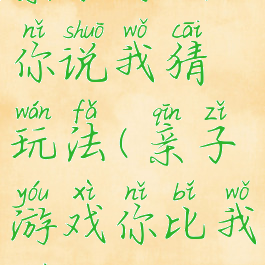 nǐ shuō wǒ cāi
你说我猜
wán fǎ qīn zǐ
玩法(亲子
yóu xì nǐ bǐ wǒ
游戏你比我